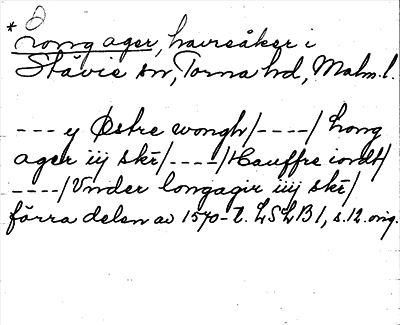 * Long ager, havreåker i
Stävie sn, Torna hd, Malm. l.
--- y Østre wongh/----/ Long
ager iij skr̄/----/Hauffre iordt/
----/Vnder longagir iiij skr̄/
förra delen av 1570-t. LSLB1, s.12. orig.